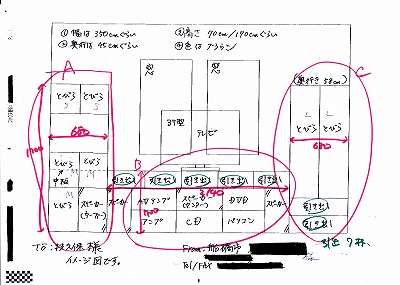 ①幅は350cmぐらい
③高さ 70cm/190cmぐらい
②奥行は45cmぐらい
④色はブラウン
A
C
窓
窓
(奥行き58cm)
とびら
とびら
S
S
680
37型
テレビ
L
L
とびら
とびら
680
1900
とびら
中板
とびら
M
M
B
引き出し
引き出し
引き出し
引き出し
引き出し
引き出し
2140
とびら
スピーカー
(ウーファー)
アンプ
700
スピーカー
(センター)
CD
DVD
パソコン
スピーカー
引き出し
引出 7杯
To:
様
イメージ図です。
From:船橋市
様
Tel/FAX